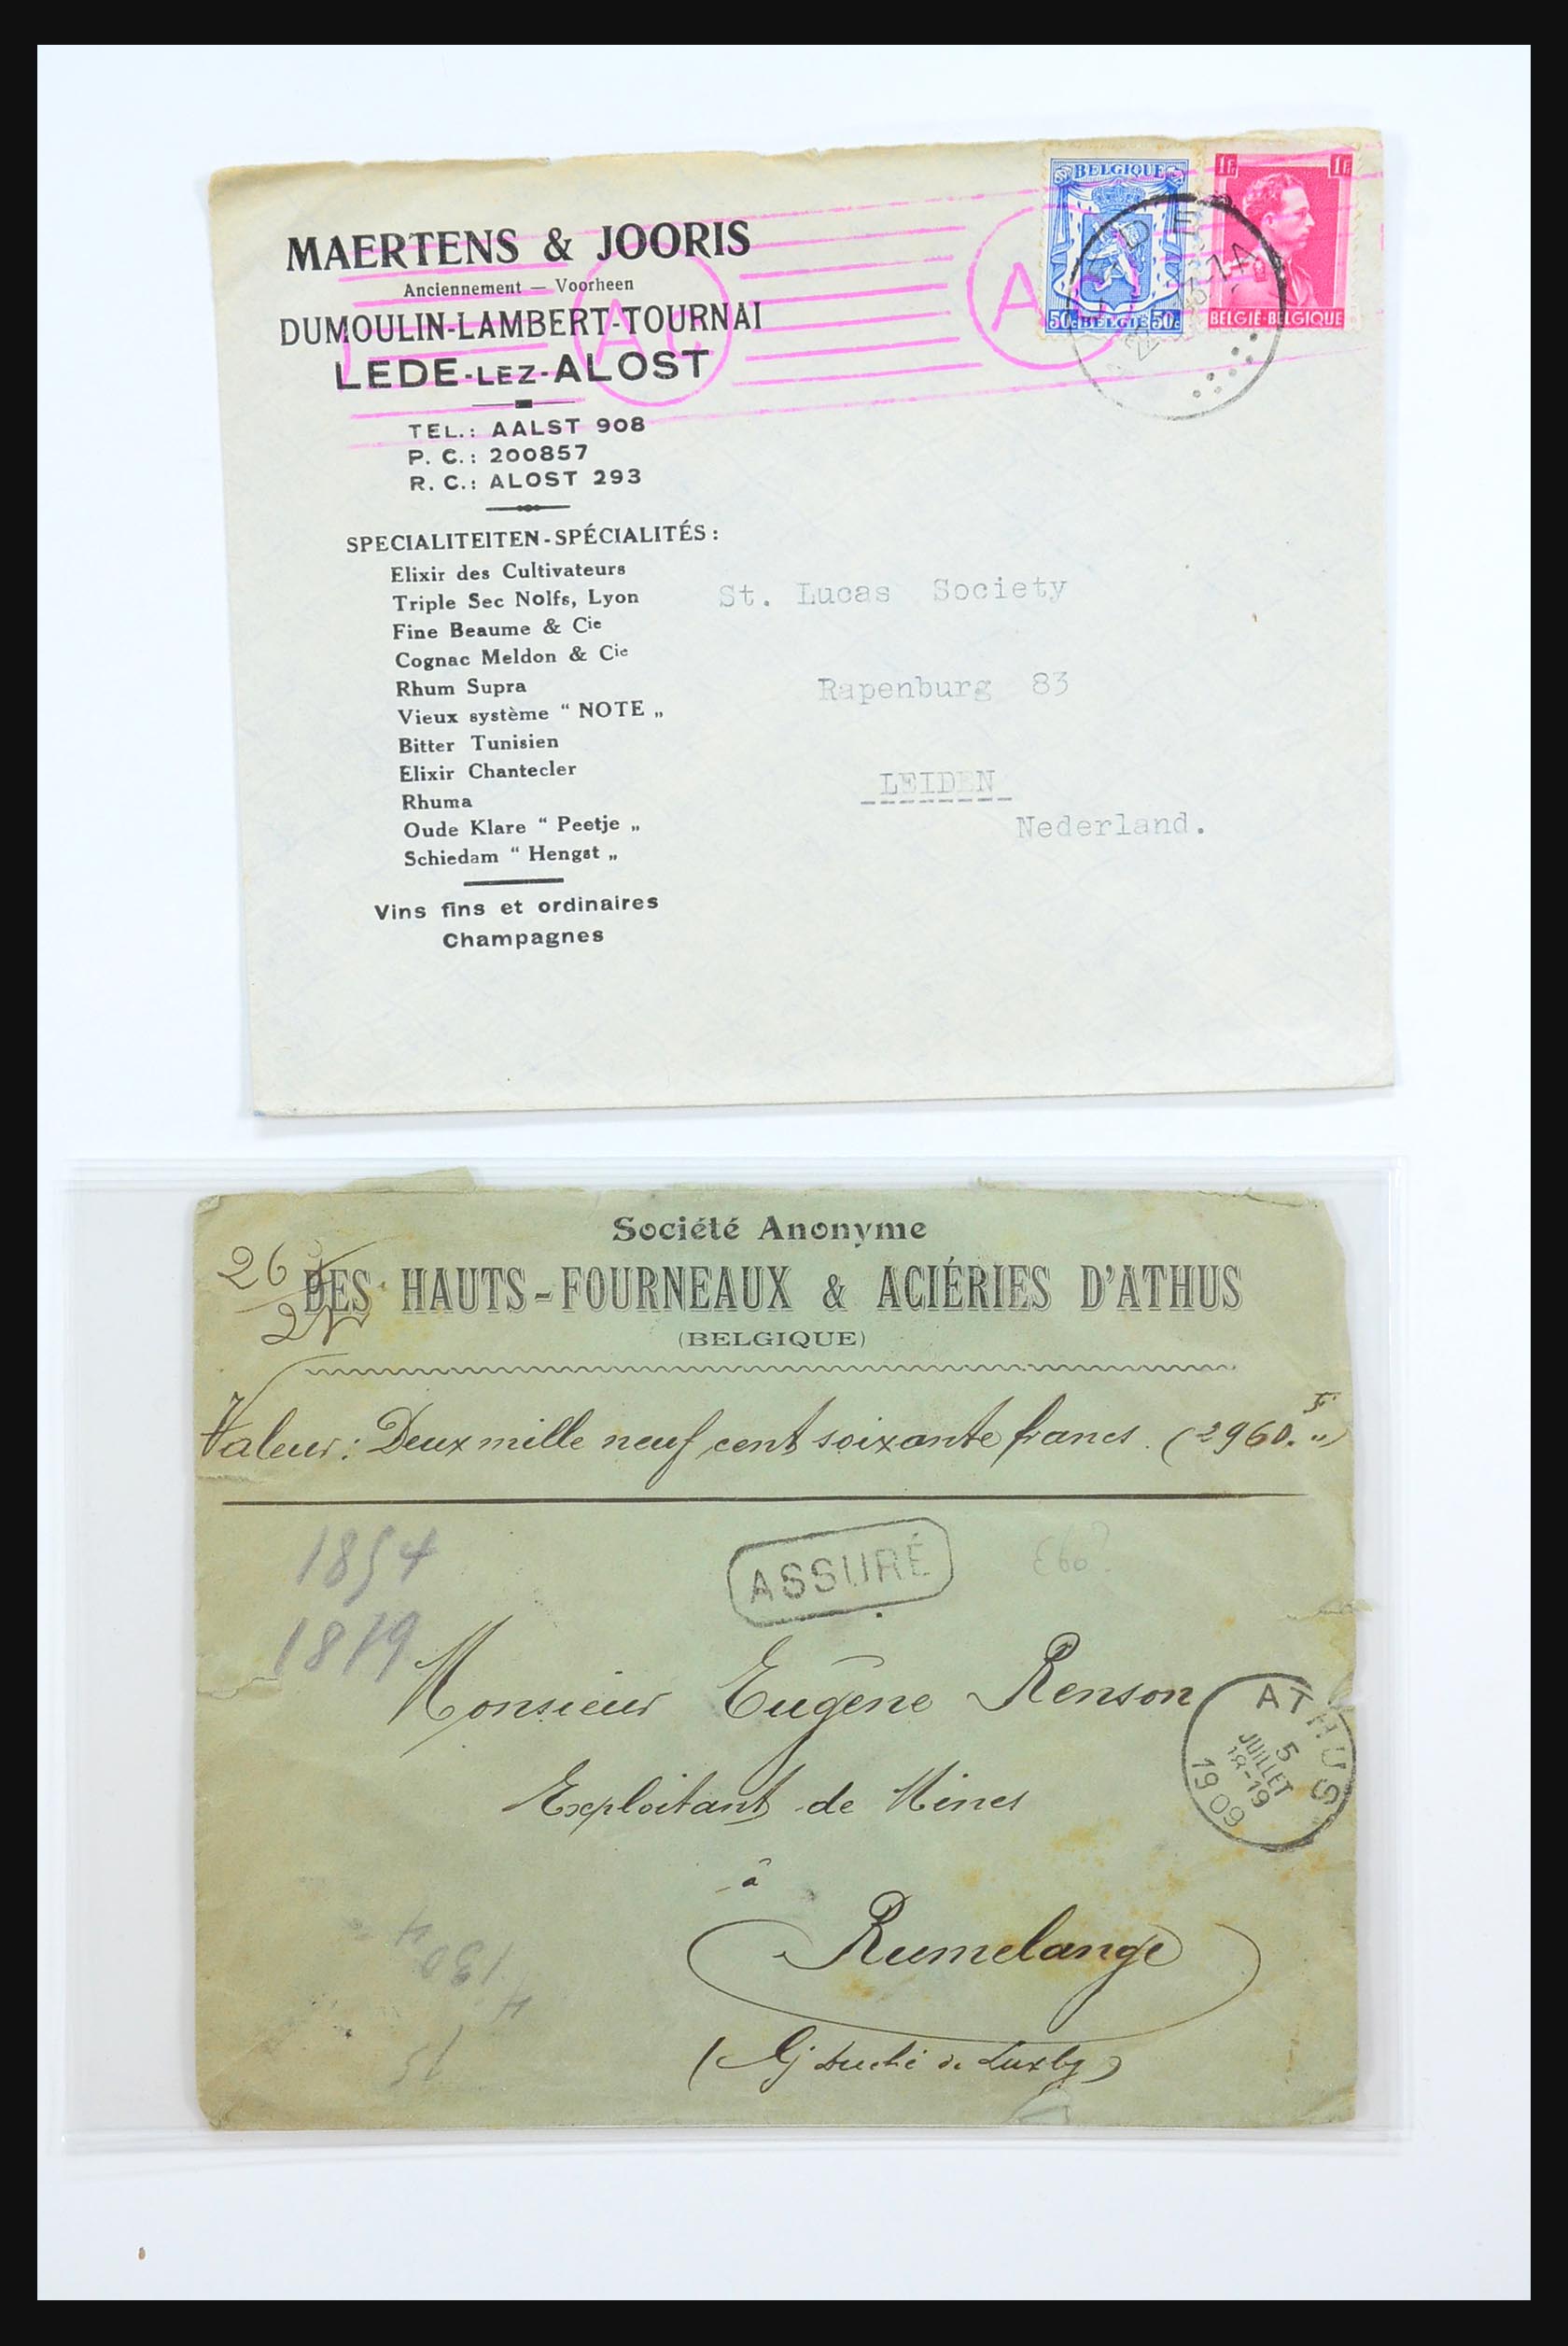 MAERTENS & JOORIS
Anciennement — Voorheen
DUMOULIN-LAMBERT-TOURNAI
LEDE-LEZ-ALOST
TEL.: AALST 908
P. C.: 200857
R. C.: ALOST 293
SPECIALITEITEN - SPÉCIALITÉS :
Elixir des Cultivateurs
Triple Sec Nolfs, Lyon
Fine Beaume & Cie
Cognac Meldon & Cie
Rhum Supra
Vieux système “ NOTE „
Bitter Tunisien
Elixir Chantecler
Rhuma
Oude Klare “ Peetje „
Schiedam “ Hengst „
Vins fins et ordinaires
Champagnes
BELGIQUE
50c BELGIË 50c
1F 1F
BELGIË-BELGIQUE
A
St. Lucas Society
Rapenburg 83
LEIDEN
Nederland.
Société Anonyme
DES HAUTS-FOURNEAUX & ACIÉRIES D'ATHUS
(BELGIQUE)
26
Valeur : Deux mille neuf cent soixante francs. (2960. F")
1854
1819
ASSURÉ
Monsieur Eugène Renson
Exploitant de Mines
à
Rumelange
(Gd Duché de Luxbg)
ATHUS
5
JUILLET
18-19
1909